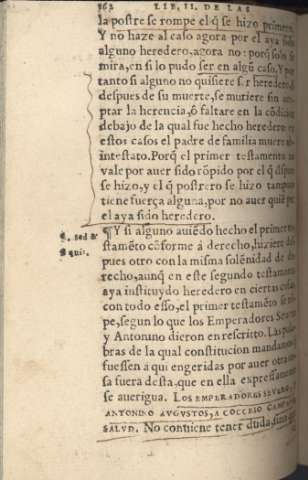 162 LIB. II. DE LAS
la postre se rompe el q̃ se hizo primero.
Y no haze al caso agora por el aya sido
alguno heredero, agora no: porq̃ solo se
mira, en si lo pudo ser en algũ caso. Y por
tanto si alguno no quisiere ser heredero, ò
despues de su muerte, se muriere sin
ptar la herencia, ò faltare en la cõdicio
debajo de la qual fue hecho heredero: en
estos casos el padre de familia muere ab
intestato. Porq̃ el primer testamento no
vale por auer sido rõpido por el q̃ despues
se hizo, y el q̃ postrero se hizo tampoco
tiene fuerça alguna, por no auer quiẽ por
el aya sido heredero.
¶Y si alguno auiẽdo hecho el primer te
stamẽto cõforme á derecho, hiziere des
pues otro con la misma solẽnidad de de
recho, aunq̃ en este segundo testamento
aya instituydo heredero en ciertas cosas,
con todo esso, el primer testamẽto se rõ
pe, segun lo que los Emperadores Seuero
y Antonino dieron en rescritto. Las pala
bras de la qual constitucion mandamos
fuessen aqui engeridas por auer otra co
sa fuera desta, que en ella expressamente
se auerigua. LOS EMPERADORES SEVERO, Y
ANTONINO AVGVSTOS, A COCCEIO CAMPANO
SALVD. No contiene tener duda,
§. sed &
si quis.